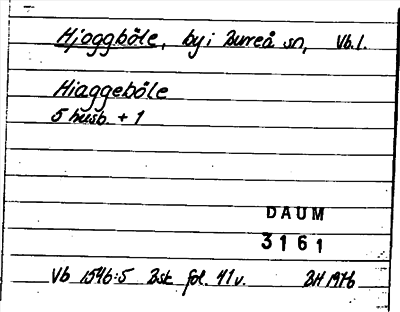 Hjoggböle, by i Bureå sn, Vb. l.
Hiaggeböle
5 husb. + 1
DAUM
3161
Vb 1546:5 Bsk fol. 41 v. BH 1976